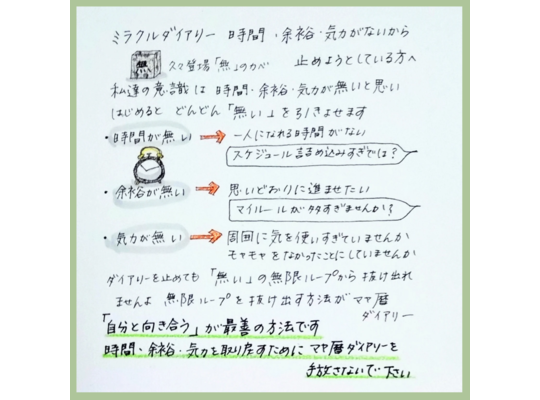 ミラクルダイアリー 時間・余裕・気力がないから
無 スマ登場「無」のカベ 止めようとしている方へ
私達の意識は 時間・余裕・気力が無いと思い
はじめると どんどん「無い」を引きよせます
・時間が無い → 一人になれる時間がない
スケジュール詰め込みすぎでは?
・余裕が無い → 思いどおりに進ませたい
マイルールが多すぎませんか?
・気力が無い → 周囲に気を使いすぎていませんか
モヤモヤをなかったことにしていませんか
ダイアリーを止めても「無い」の無限ループから抜け出れ
ませんよ 無限ループを抜け出す方法がマヤ暦
ダイアリー
「自分と向き合う」が最善の方法です
時間、余裕・気力を取り戻すために マヤ暦ダイアリーを
手放さないで下さい